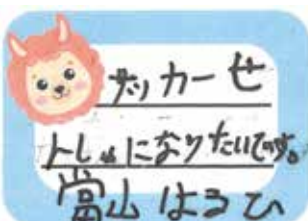 サッカーせ
んしゅになりたいです。
當山 はるひ